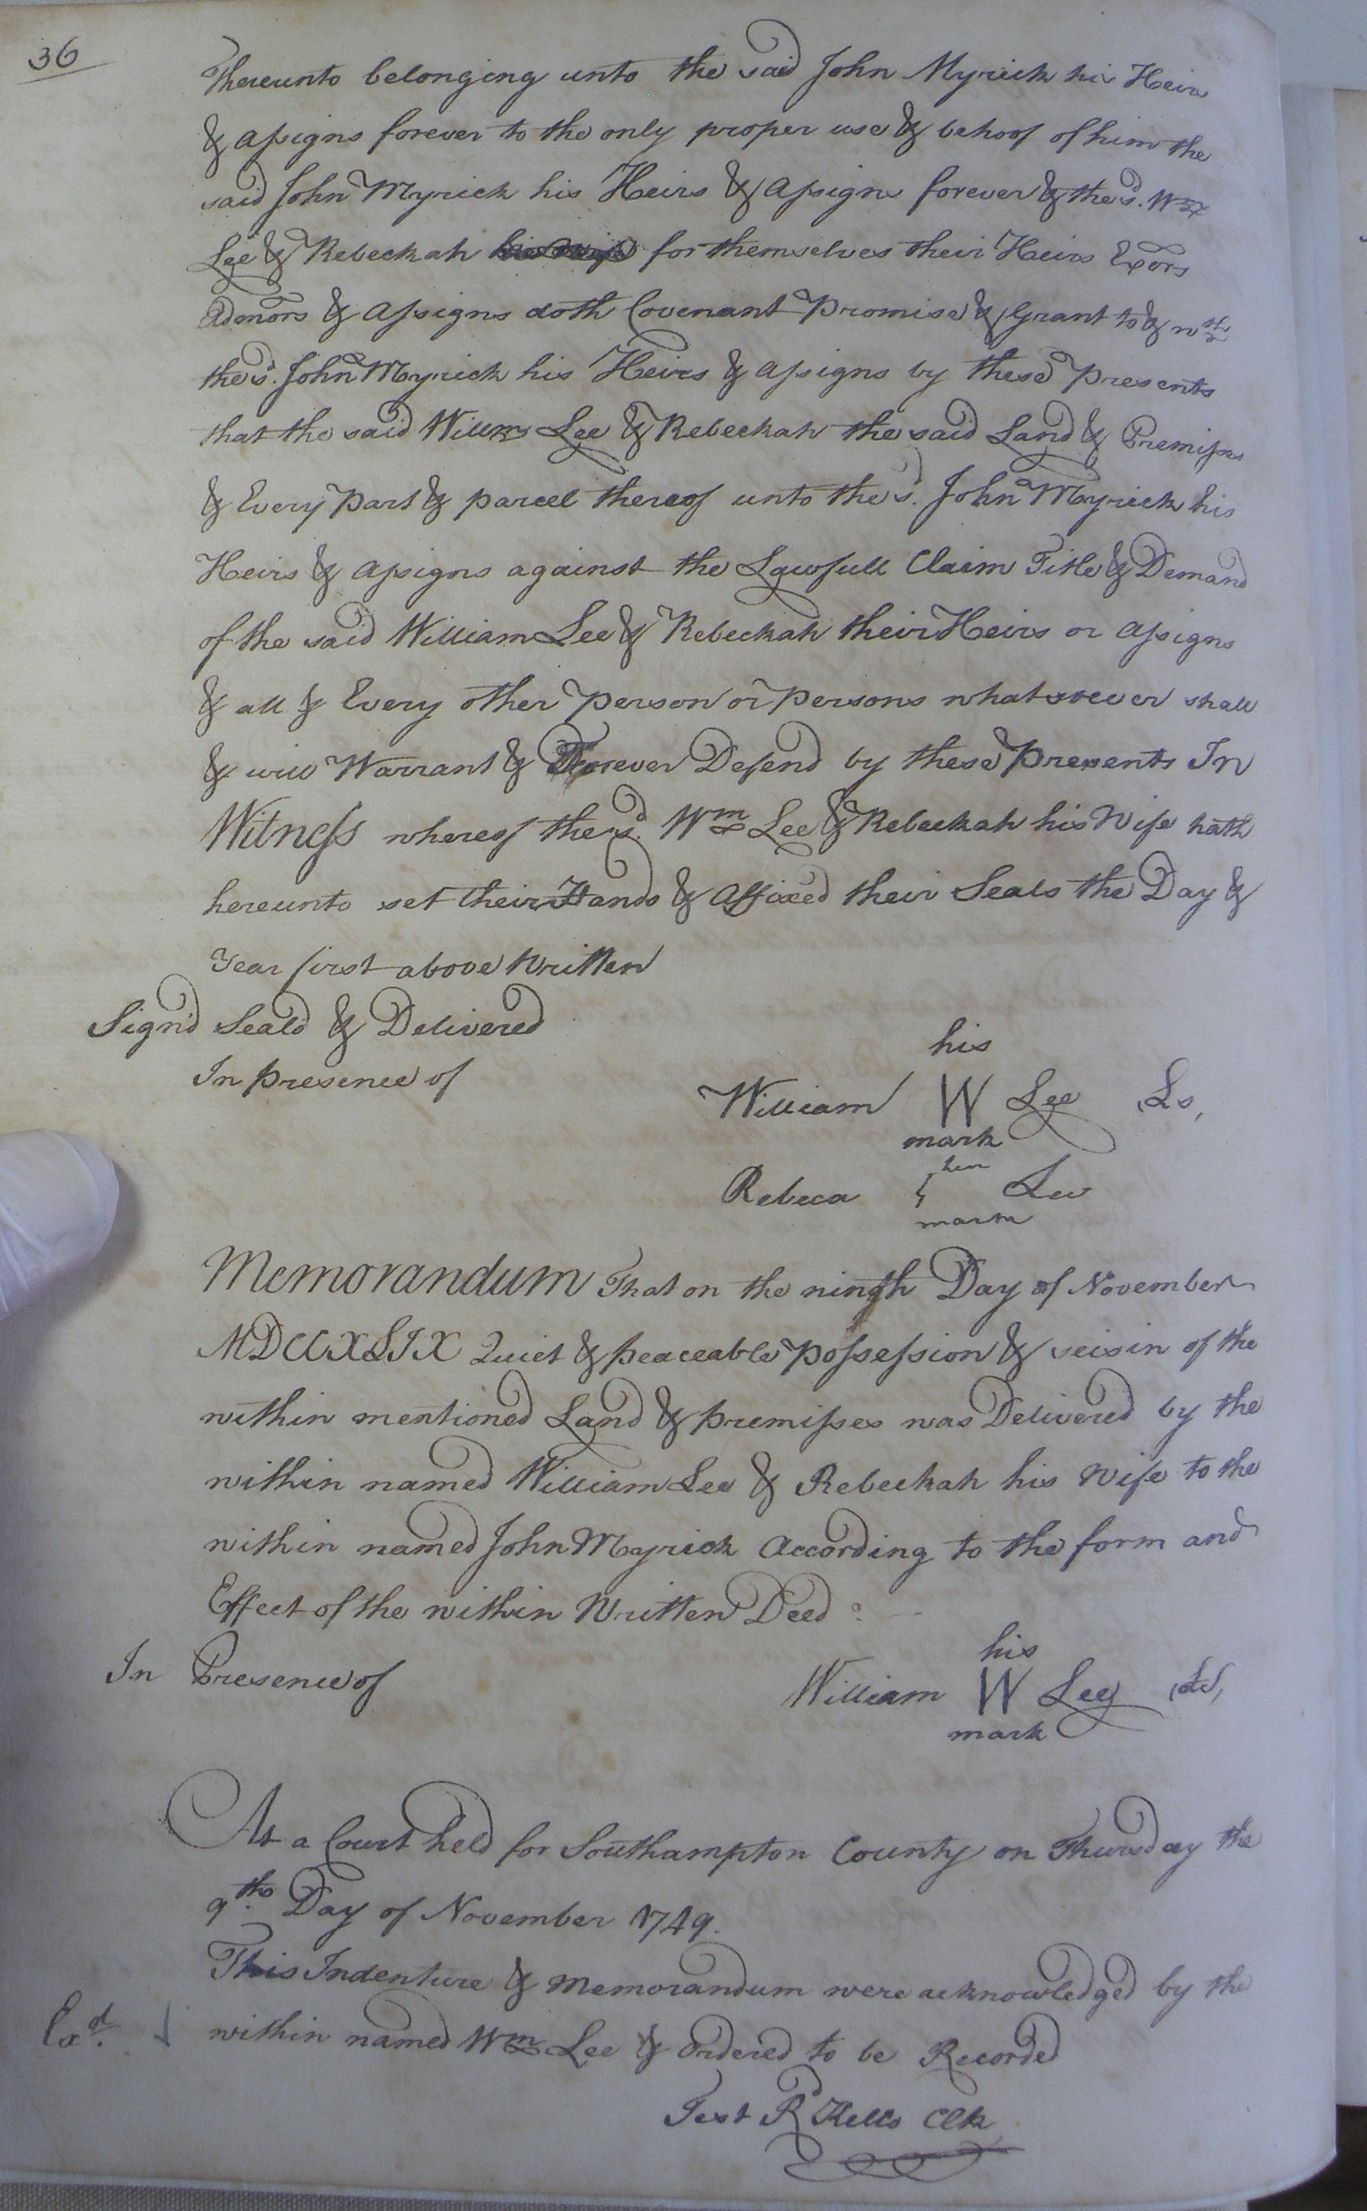 36
Thereunto belonging unto the said John Myrick his Heirs
& assigns forever to the only proper use & behoof of him the
said John Myrick his Heirs & Assigns forever & the sd. Wm
Lee & Rebeckah his wife for themselves their Heirs Exors
Admors & Assigns doth Covenant Promise & Grant to & wth
the sd. John Myrick his Heirs & Assigns by these presents
that the said Willm Lee & Rebeckah the said Land & Premisses
& Every Part & parcel thereof unto the sd. John Myrick his
Heirs & Assigns against the Lawfull Claim Title & Demand
of the said William Lee & Rebeckah their Heirs or Assigns
& all & Every other Person or Persons whatsoever shall
& will Warrant & Forever Defend by these Presents In
Witness whereof the sd. Wm Lee & Rebeckah his Wife hath
hereunto set their Hands & Affixed their Seals the Day &
Year first above Written
Sign'd Seald & Delivered
In presence of
his
William W Lee Ls,
mark
her
Rebeca Lee
mark
Memorandum That on the ninth Day of November
MDCCXLIX Quiet & peaceable Possession & seisin of the
within mentioned Land & premisses was Delivered by the
within named William Lee & Rebeckah his Wife to the
within named John Myrick According to the form and
Effect of the within Written Deed
In Presence of
his
William W Lee Ls,
mark
At a Court held for Southampton County on Thursday the
9th. Day of November 1749.
This Indenture & Memorandum were acknowledged by the
Exd. within named Wm Lee & Ordered to be Recorded
Test R Kello Clk